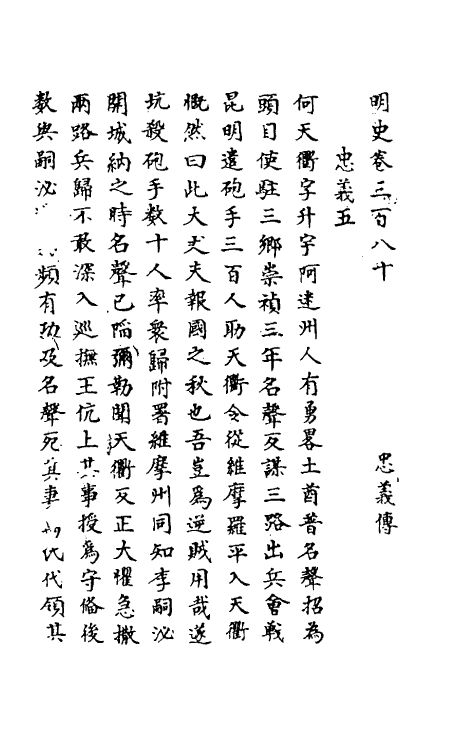 明史卷三百八十　忠義傳
忠義五
何天衢字升宇阿迷州人有勇畧土酋普名聲招為
頭目使駐三鄉崇禎三年名聲反謀三路出兵會戰
昆明遣砲手三百人助天衢令從維摩羅平入天衢
慨然曰此大丈夫報國之秋也吾豈為逆賊用哉遂
坑殺砲手數十人率衆歸附署維摩州同知李嗣泌
開城納之時名聲已陷彌勒聞天衢反正大懼急撤
兩路兵歸不敢深入巡撫王伉上其事授為守俻後
數與嗣泌頻有功及名聲死其妻氏代領其